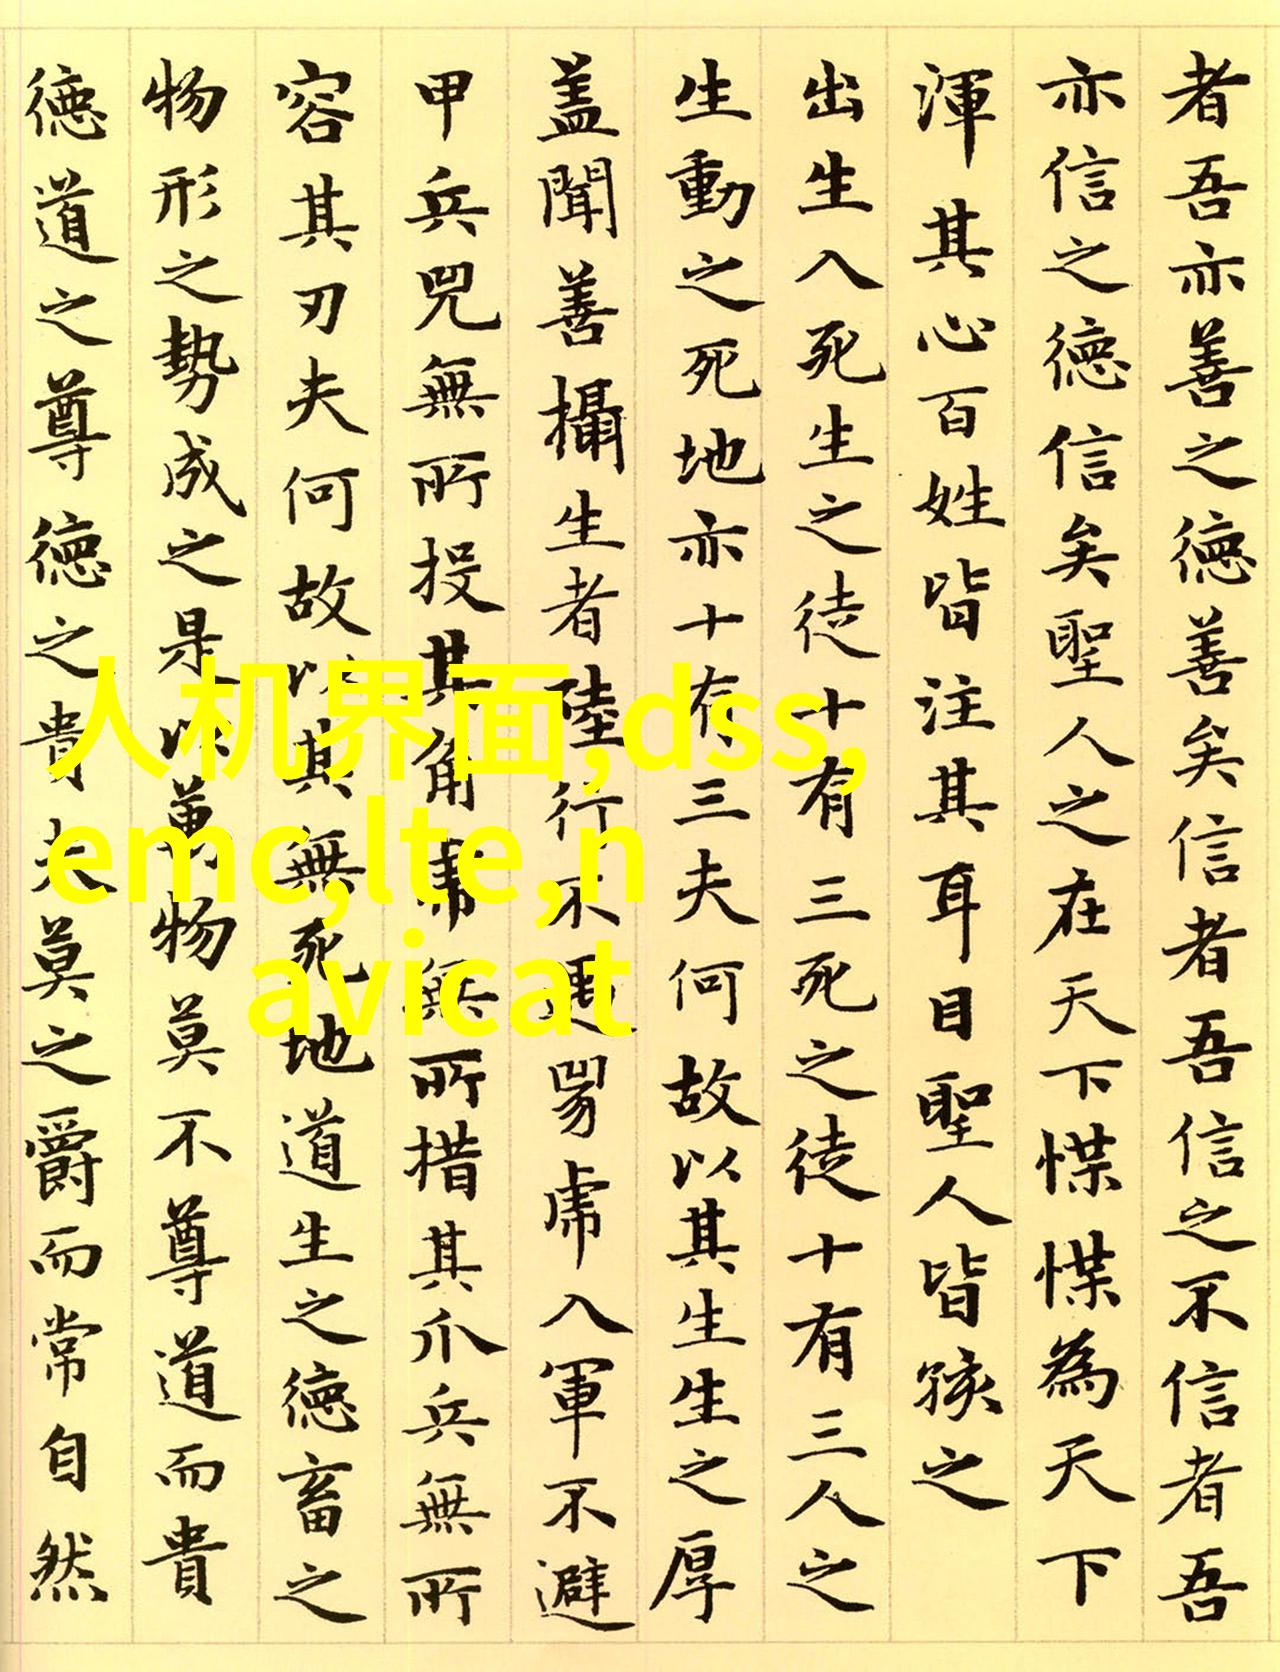 者吾亦善之德善矣信者吾信之不信者吾
亦信之德信矣聖人之在天下惵惵為天下
渾其心百姓皆注其耳目聖人皆孩之
出生入死生之徒十有三死之徒十有三人之
生動之死地亦十有三夫何故以其生生之厚
蓋聞善攝生者陸行不遇兕虎入軍不避
甲兵兕無所投其角虎無所措其爪兵無所
容其刃夫何故以其無死地道生之德畜之
物形之勢成之是以萬物莫不尊道而貴
德道之尊德之貴夫莫之爵而常自然
人机界面,dss,
emc,lte,n
avicat